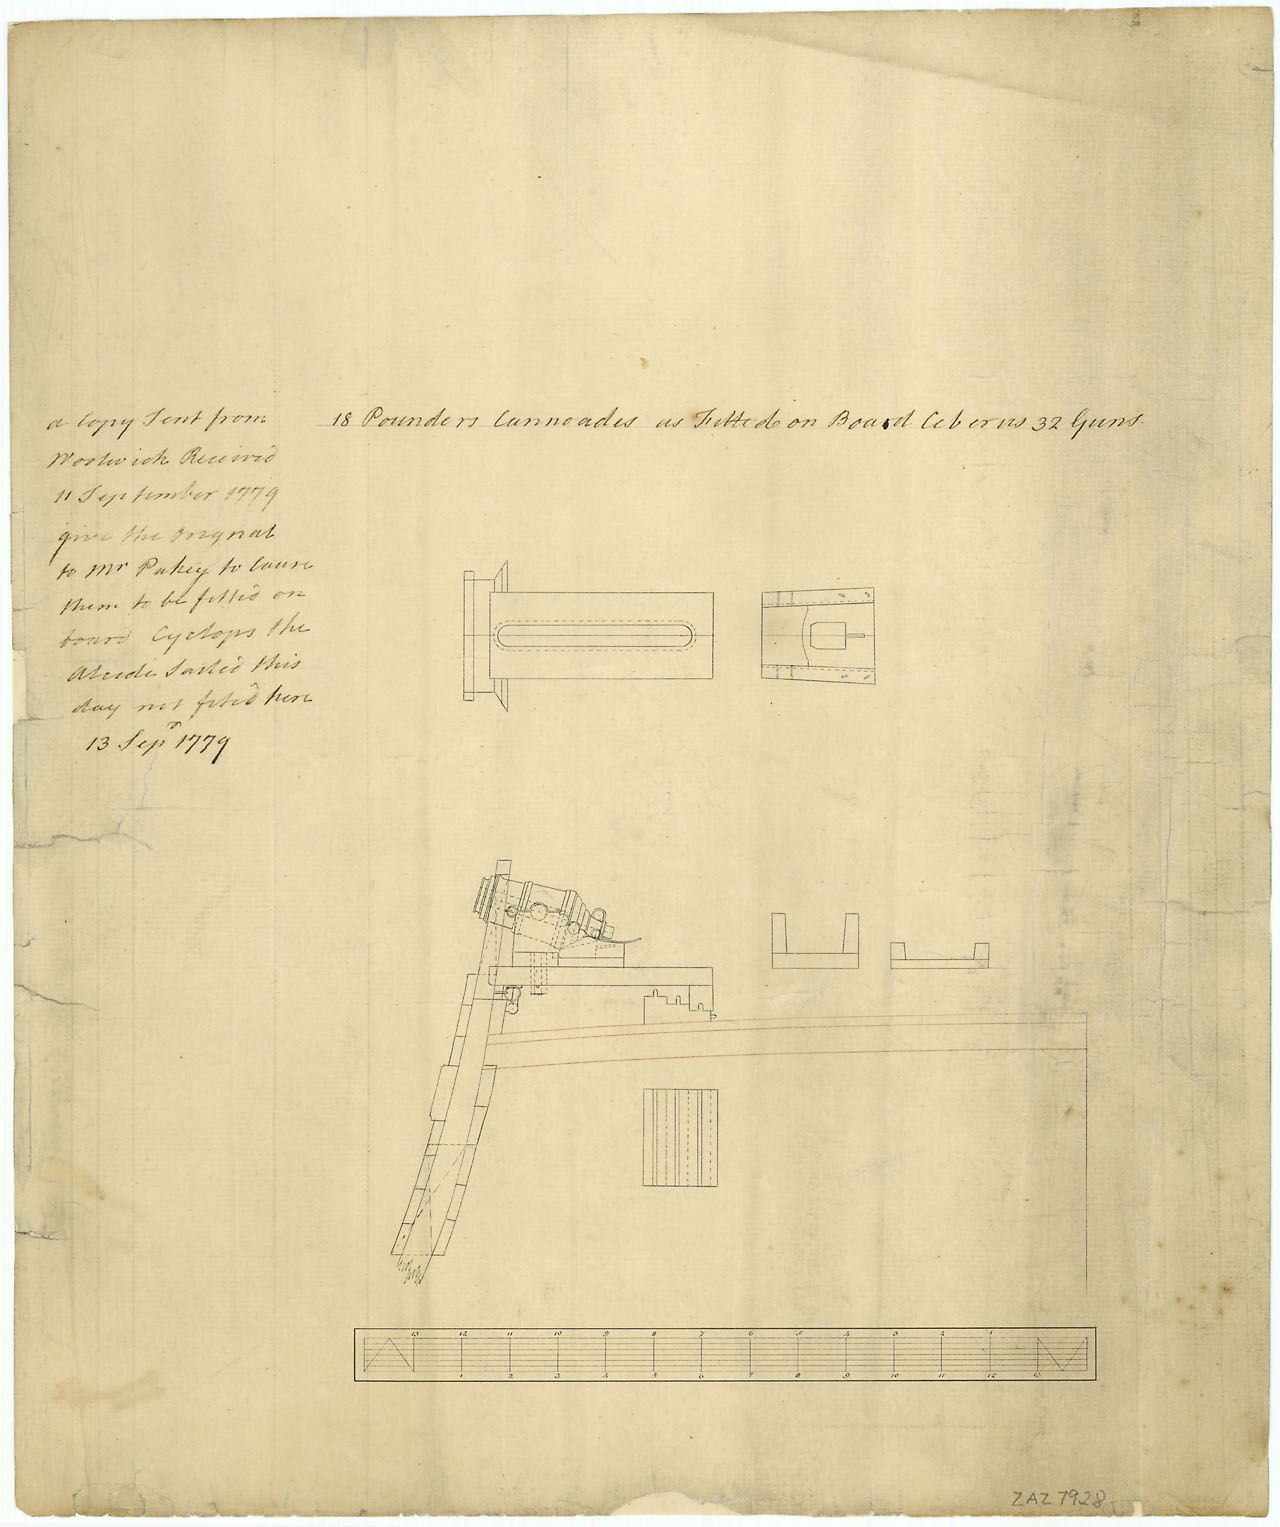 18 Pounders Cannoades as Fitted on Board Ceberus 32 Guns
a Copy Sent from
Woolwich Received
11 September 1779
give the Orignal
to Mr to Cause
them to be fitted on
board Cyclops the
Alcide Sailed this
day not fited here
13 Sepr 1779
13 12 11 10 9 8 7 6 5 4 3 2 1
1 2 3 4 5 6 7 8 9 10 11 12 13
ZAZ 7928